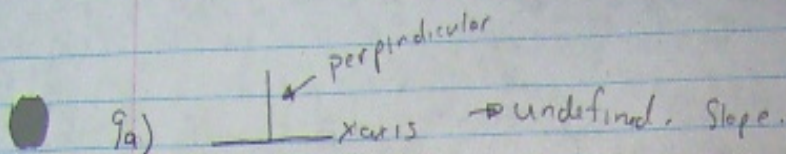 perpindicular
9a) xaxis → undefined. Slope.